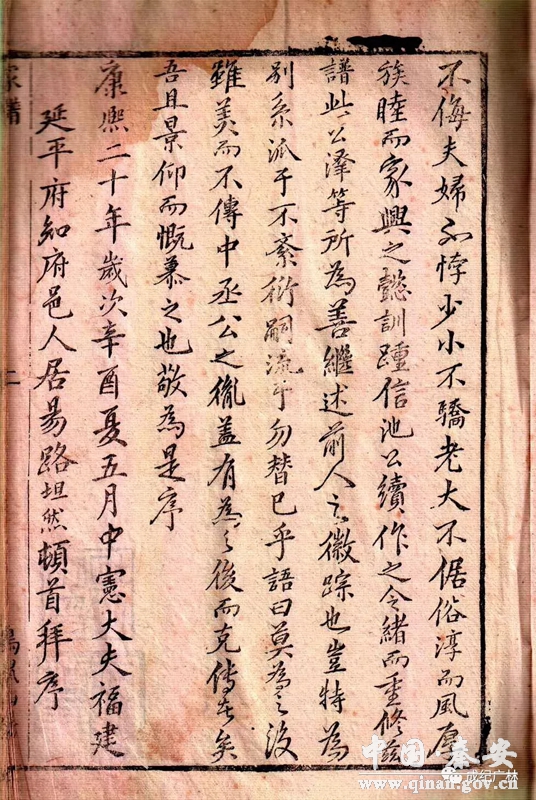 不侮夫婦不悖少小不驕老大不倨俗淳而風厚
族睦而家興之懿訓踵信池公續作之令緒而重修茲
譜此公澤等所為善繼述前人之徽踪也豈特為
別系派于不紊衍嗣流于勿替已乎語曰莫為之後
雖美而不傳中丞公之胤蓋有為之後而克傳者矣
吾且景仰而慨慕之也敬為是序
康熙二十年歲次辛酉夏五月中憲大夫福建
延平府知府邑人居易路坦然頓首拜序
家譜
二
中国·秦安
www.qinan.gov.cn
成纪广林